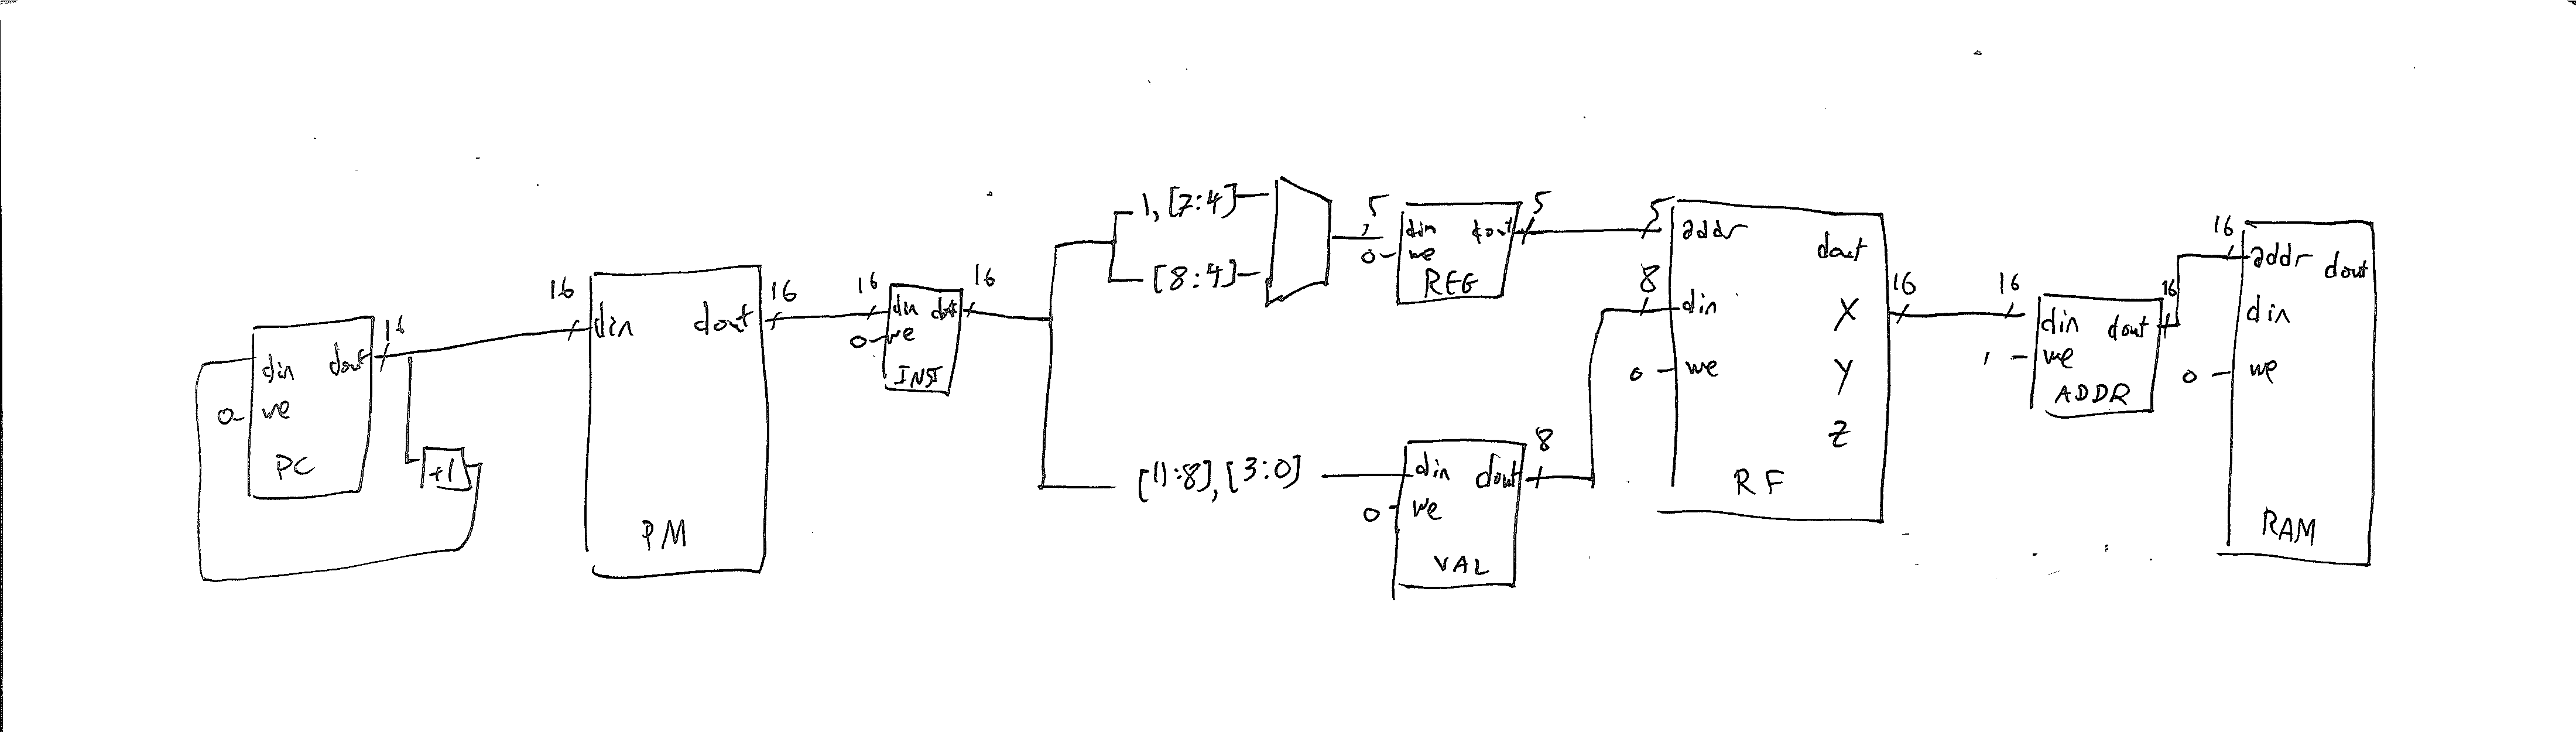 16
din dout
0 we
PC
+1
16 16
din dout
PM
16 16
din dout
0 we
INST
1, [7:4]
[8:4]
[11:8], [3:0]
5 5
din dout
0 we
REG
8
din dout
0 we
VAL
5
addr dout
8
din X 16
0 we Y
Z
RF
16 16
din dout
1 we
ADDR
16
addr dout
din
0 we
RAM